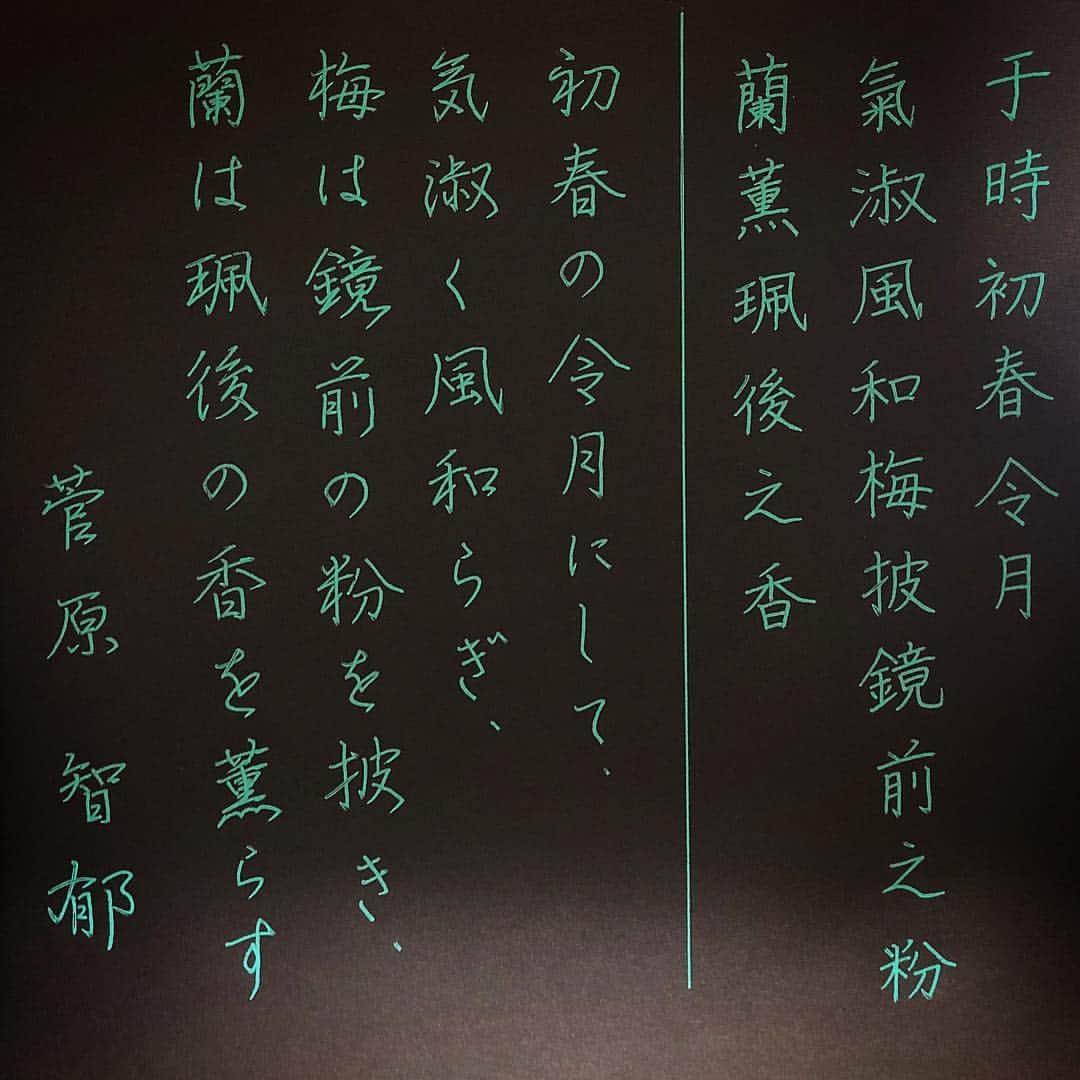 于時初春令月
氣淑風和梅披鏡前之粉
蘭薫珮後之香
初春の令月にして、
気淑く風和らぎ、
梅は鏡前の粉を披き、
蘭は珮後の香を薫らす
菅原 智郁